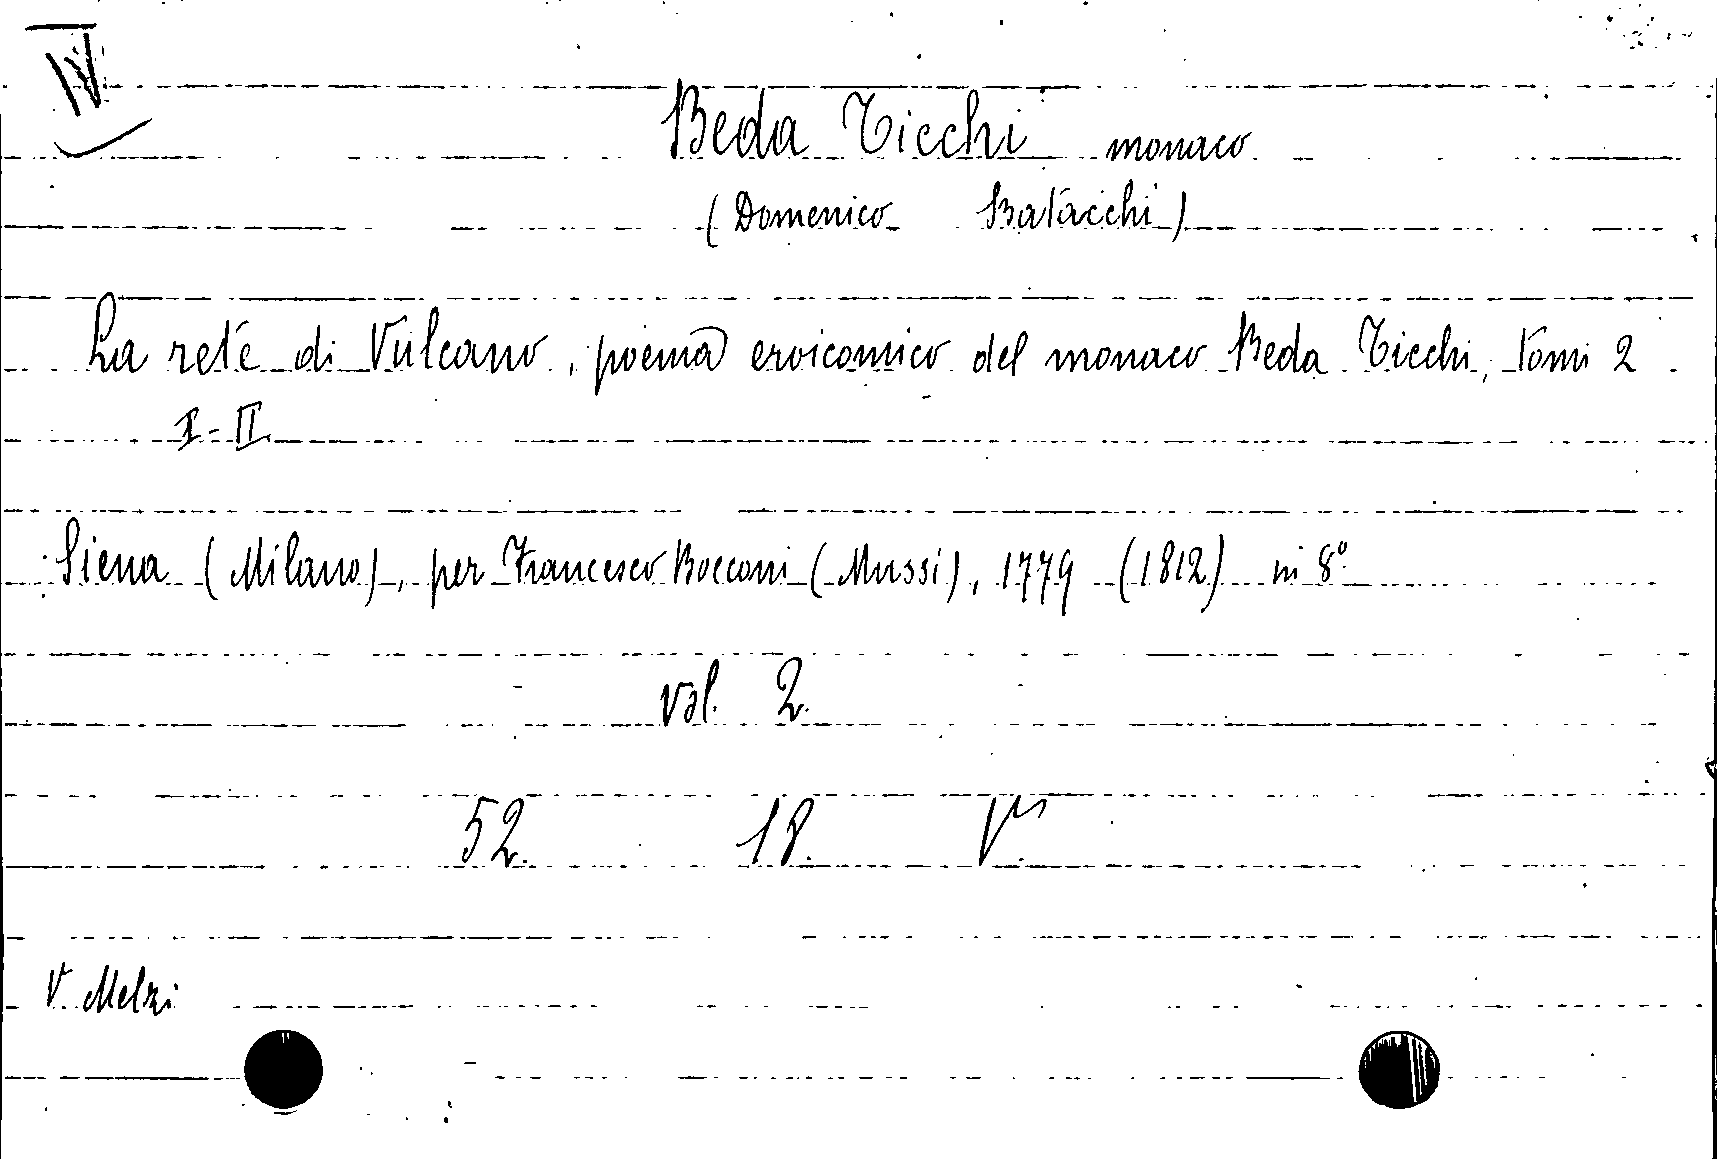 IV
Beda Ticchi monaco
(Domenico Batacchi)
La rete di Vulcano, poema eroicomico del monaco Beda Ticchi, tomi 2
I-II
Siena (Milano), per Francesco Bocconi (Mussi), 1779 (1812) in 8°
Vol. 2.
52. 18. V
V. Melzi